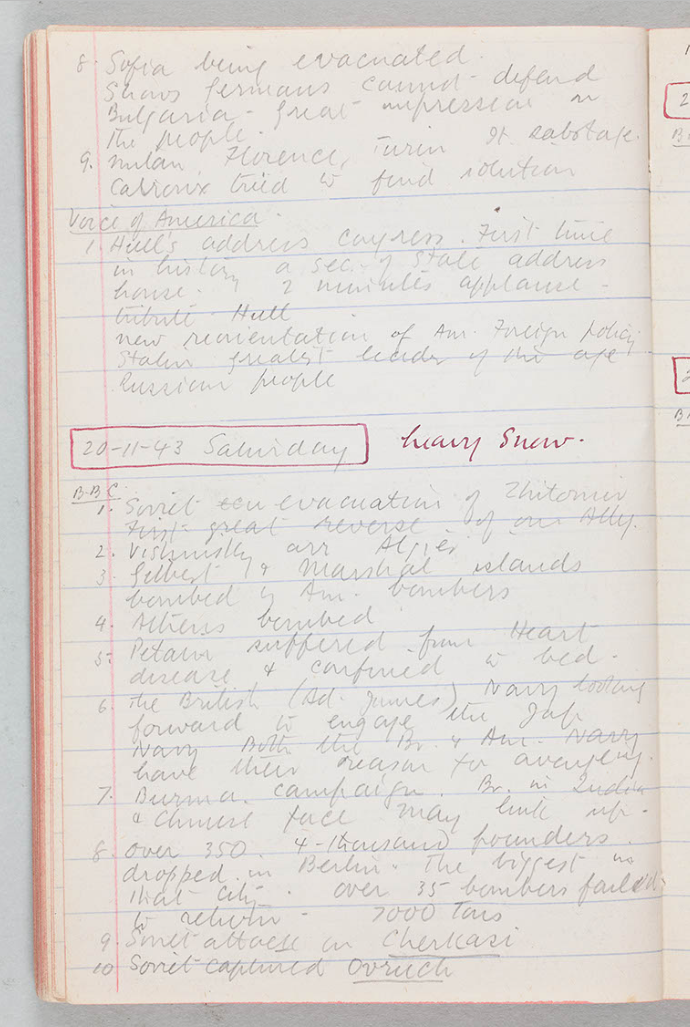 8. Sofia being evacuated.
Shows Germans cannot defend
Bulgaria. Great impression on
the people.
9. Milan, Florence, Turin It sabotage.
tried to find solution
Voice of America.
1. Hull's address congress. First time
in history a Sec. of State address
house. 2 minutes applause -
tribute Hull
new reorientation of Am. Foreign policy
Stalin greatest leader of the age
Russian people
20-11-43 Saturday heavy Snow.
B.B.C.
1. Soviet evacuation of Zhitomir
First great reverse of our Ally.
2. Vishinsky arr Algies
3. Gilbert & Marshal islands
bombed by Am. bombers
4. Athens bombed
5. Petain suffered from Heart
disease & confined to bed.
6. The British (Ad. James) Navy looking
forward to engage the Jap
Navy Both the Br. & Am. Navy
have their reason for avenging.
7. Burma campaign. Br. in India
& Chinese face may link up.
8. Over 350. 4-thousand pounders
dropped in Berlin. The biggest in
that city. over 35 bombers failed
to return - Tons
9. Soviet attack on Cherkasi
10 Soviet captured Ovruch